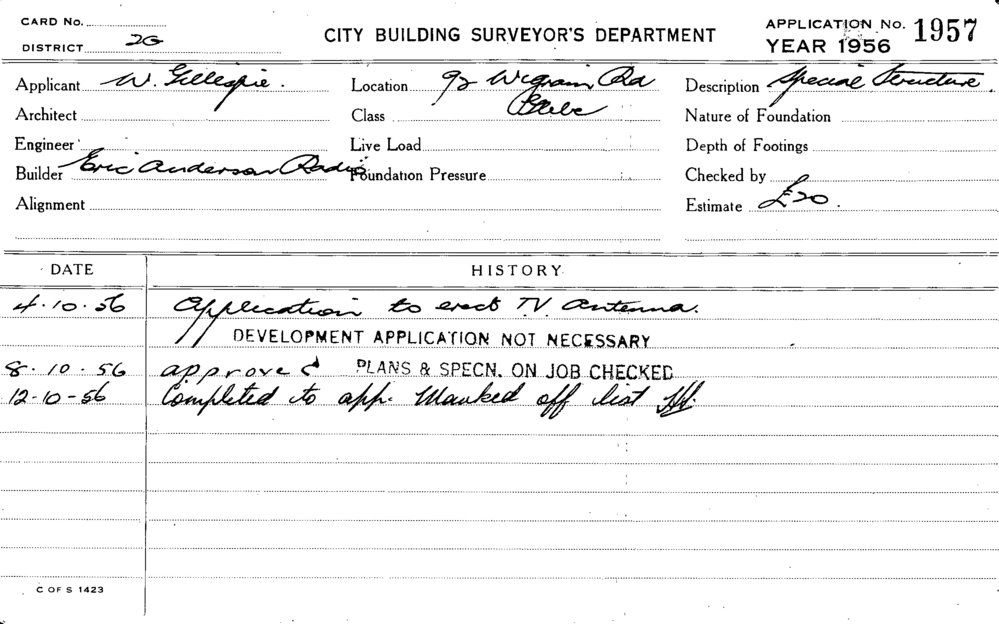 CARD No.
DISTRICT 2G
CITY BUILDING SURVEYOR'S DEPARTMENT
APPLICATION No. 1957
YEAR 1956
Applicant W. Gillespie. Location 92 Wigram Rd Description Special Structure.
Architect Class Glebe Nature of Foundation
Engineer Live Load Depth of Footings
Builder Eric Anderson Radio Foundation Pressure Checked by
Alignment Estimate £20.
DATE HISTORY
4.10.56 Application to erect T.V. Antenna.
DEVELOPMENT APPLICATION NOT NECESSARY
8.10.56 approved PLANS & SPECN. ON JOB CHECKED
12-10-56 Completed to app. Marked off list
C OF S 1423